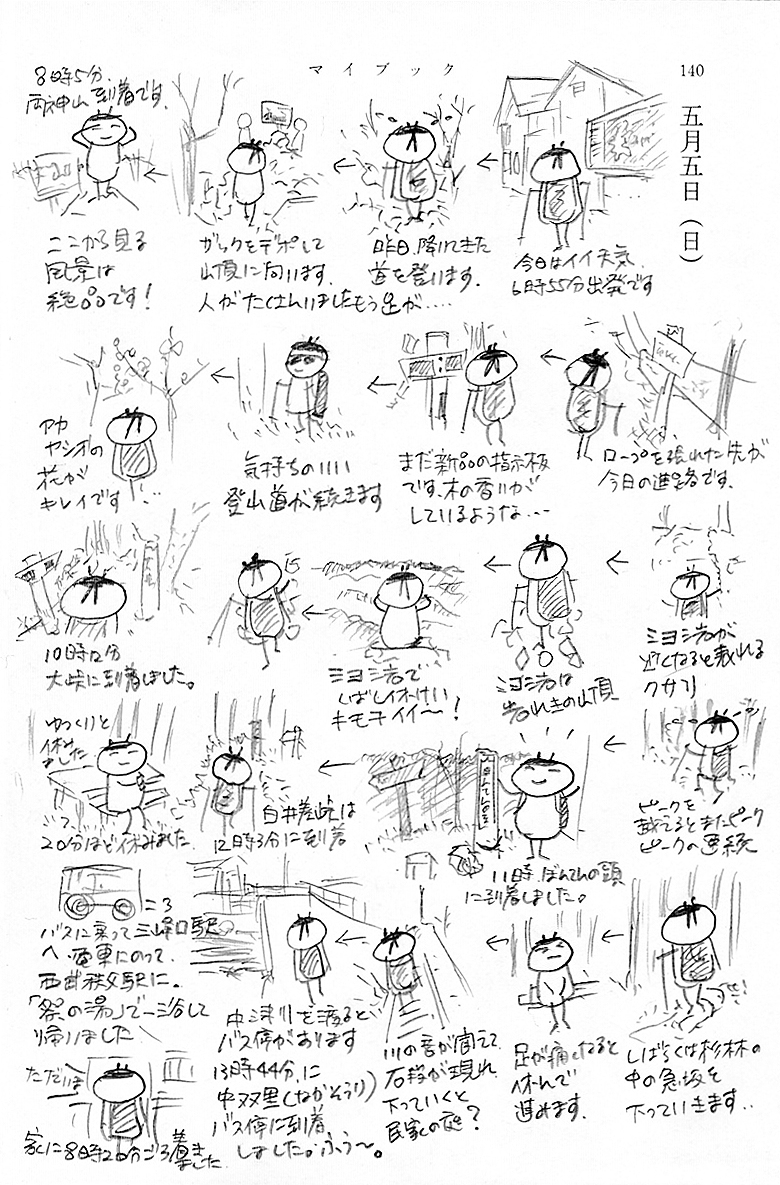 マイブック
140
五月五日（日）
今日はイイ天気
6時55分出発です
昨日、降りてきた
道を登ります。
ザックをデポして
山頂に向います。
人がたくさんいましたもう足が....
8時5分.
両神山到着です.
ここから見る
風景は
絶品です!
ロープを張られた先が
今日の進路です.
まだ新品の指示板
です、木の香りが
しているような...
気持ちのイイ
登山道が続きます
アカ
ヤシオの
花が
キレイです
ミヨシ岩が
近くなると表れる
クサリ
ミヨシ岩は
岩れきの山頂
ミヨシ岩で
しばし休けい
キモチイイ〜!
10時12分
大峠に到着しました。
ピークを
越えるとまたピーク
ピークの連続
11時.ばんてんの頭
に到着しました。
白井差峠は
12時3分に到着
ゆっくりと
休み
ました
20分ほど休みました.
しばらくは杉林の
中の急坂を
下っていきます..
足が痛くなると
休んで
進みます.
川の音が聞えて
石段が現れ
下っていくと
民家の庭?
中津川を渡ると
バス停があります
13時44分.に
中双里(なかそうり)
バス停に到着.
しました。ふう〜。
バスに乗って三峰口駅
へ.電車にのって.
西武秩父駅に。
「祭の湯」で一浴して
帰りました
ただいま
家に8時20分ごろ着き
ました